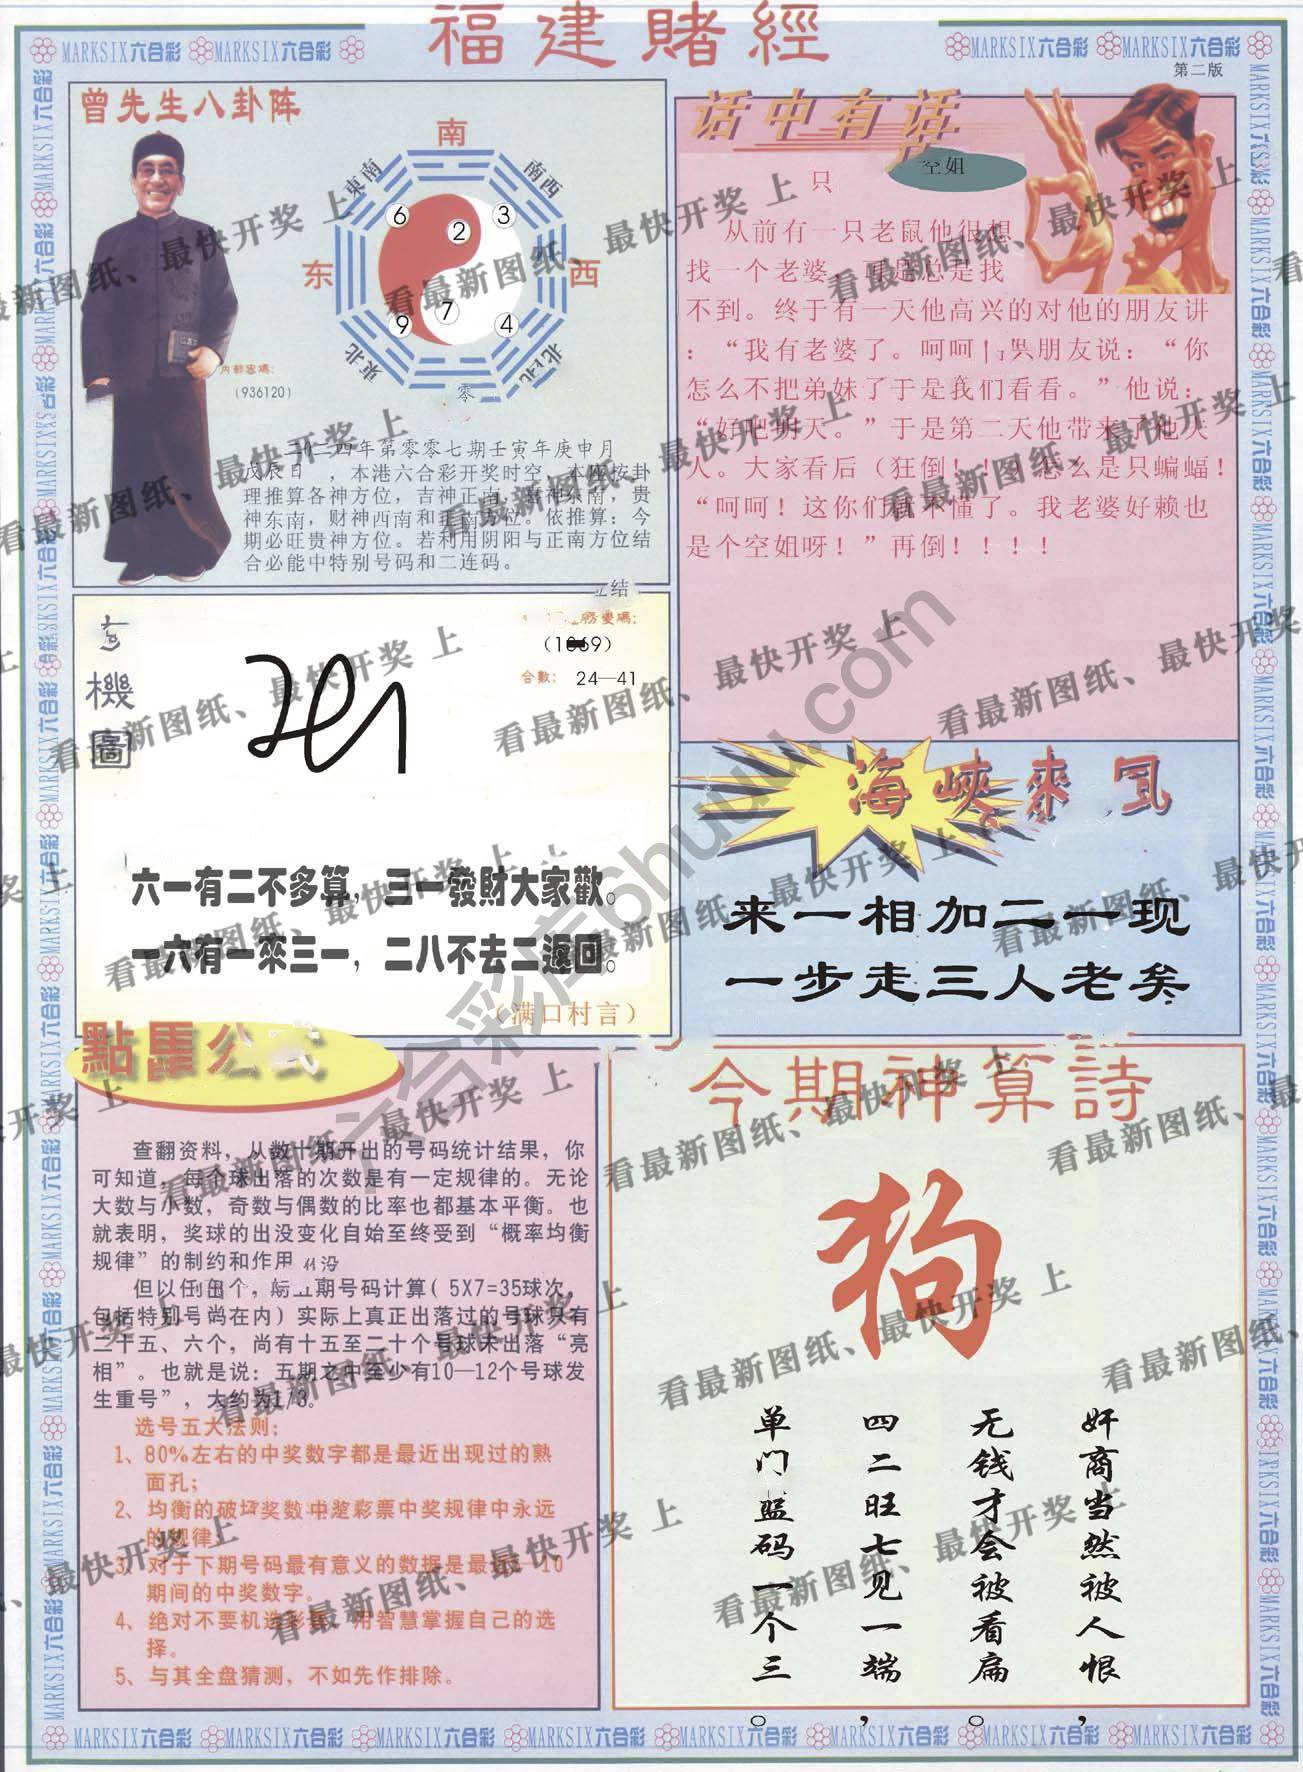 福建賭經
MARKSIX六合彩 MARKSIX六合彩
MARKSIX六合彩 MARKSIX六合彩
第二版
曾先生八卦阵
南
東南
南西
东
西
東北
6
2
3
7
9
4
零
内部密碼:
(936120)
二零二四年第零零七期壬寅年庚申月
戊辰日 ，本港六合彩开奖时空，本阵按卦
理推算各神方位，吉神正南，喜神东南，贵
神东南，财神西南和正南方位。依推算：今
期必旺贵神方位。若利用阴阳与正南方位结
合必能中特别号码和二连码。
结
话中有话
空姐
只
从前有一只老鼠他很想
找一个老婆，可是总是找
不到。终于有一天他高兴的对他的朋友讲
：“我有老婆了。呵呵 朋友说：“你
怎么不把弟妹了于是我们看看。”他说：
“好吧明天。”于是第二天他带来了他夫
人。大家看后（狂倒！！）怎么是只蝙蝠！
“呵呵！这你们就不懂了。我老婆好赖也
是个空姐呀！”再倒！！！！
玄機圖
變碼:
合數: 24—41
六一有二不多算，三一發財大家歡。
一六有一來三一，二八不去二返回。
（满口村言）
海峽來风
来一相加二一现
一步走三人老矣
點 公式
查翻资料，从数十期开出的号码统计结果，你
可知道，每个球出落的次数是有一定规律的。无论
大数与小数，奇数与偶数的比率也都基本平衡。也
就表明，奖球的出没变化自始至终受到“概率均衡
规律”的制约和作用
但以任 个， 期号码计算( 5X7=35球次，
包括特别号码在内）实际上真正出落过的号球只有
二十五、六个，尚有十五至二十个号球未出落“亮
相”。也就是说：五期之中至少有10—12个号球发
生重号”，大约为1/3。
选号五大法则：
1、80%左右的中奖数字都是最近出现过的熟
面孔；
2、均衡的破坏奖数中是彩票中奖规律中永远
的规律
3、对于下期号码最有意义的数据是最近 10
期间的中奖数字。
4、绝对不要机选彩票，用智慧掌握自己的选
择。
5、与其全盘猜测，不如先作排除。
今期神算詩
狗
奸商当然被人恨，
无钱才会被看扁。
四二旺七见一端，
单门蓝码一个三。
看最新图纸、最快开奖 上
六合彩库6huuu.com
MARKSIX六合彩 MARKSIX六合彩 MARKSIX六合彩 MARKSIX六合彩 MARKSIX六合彩 MARKSIX六合彩 MARKSIX六合彩 MARKSIX六合彩